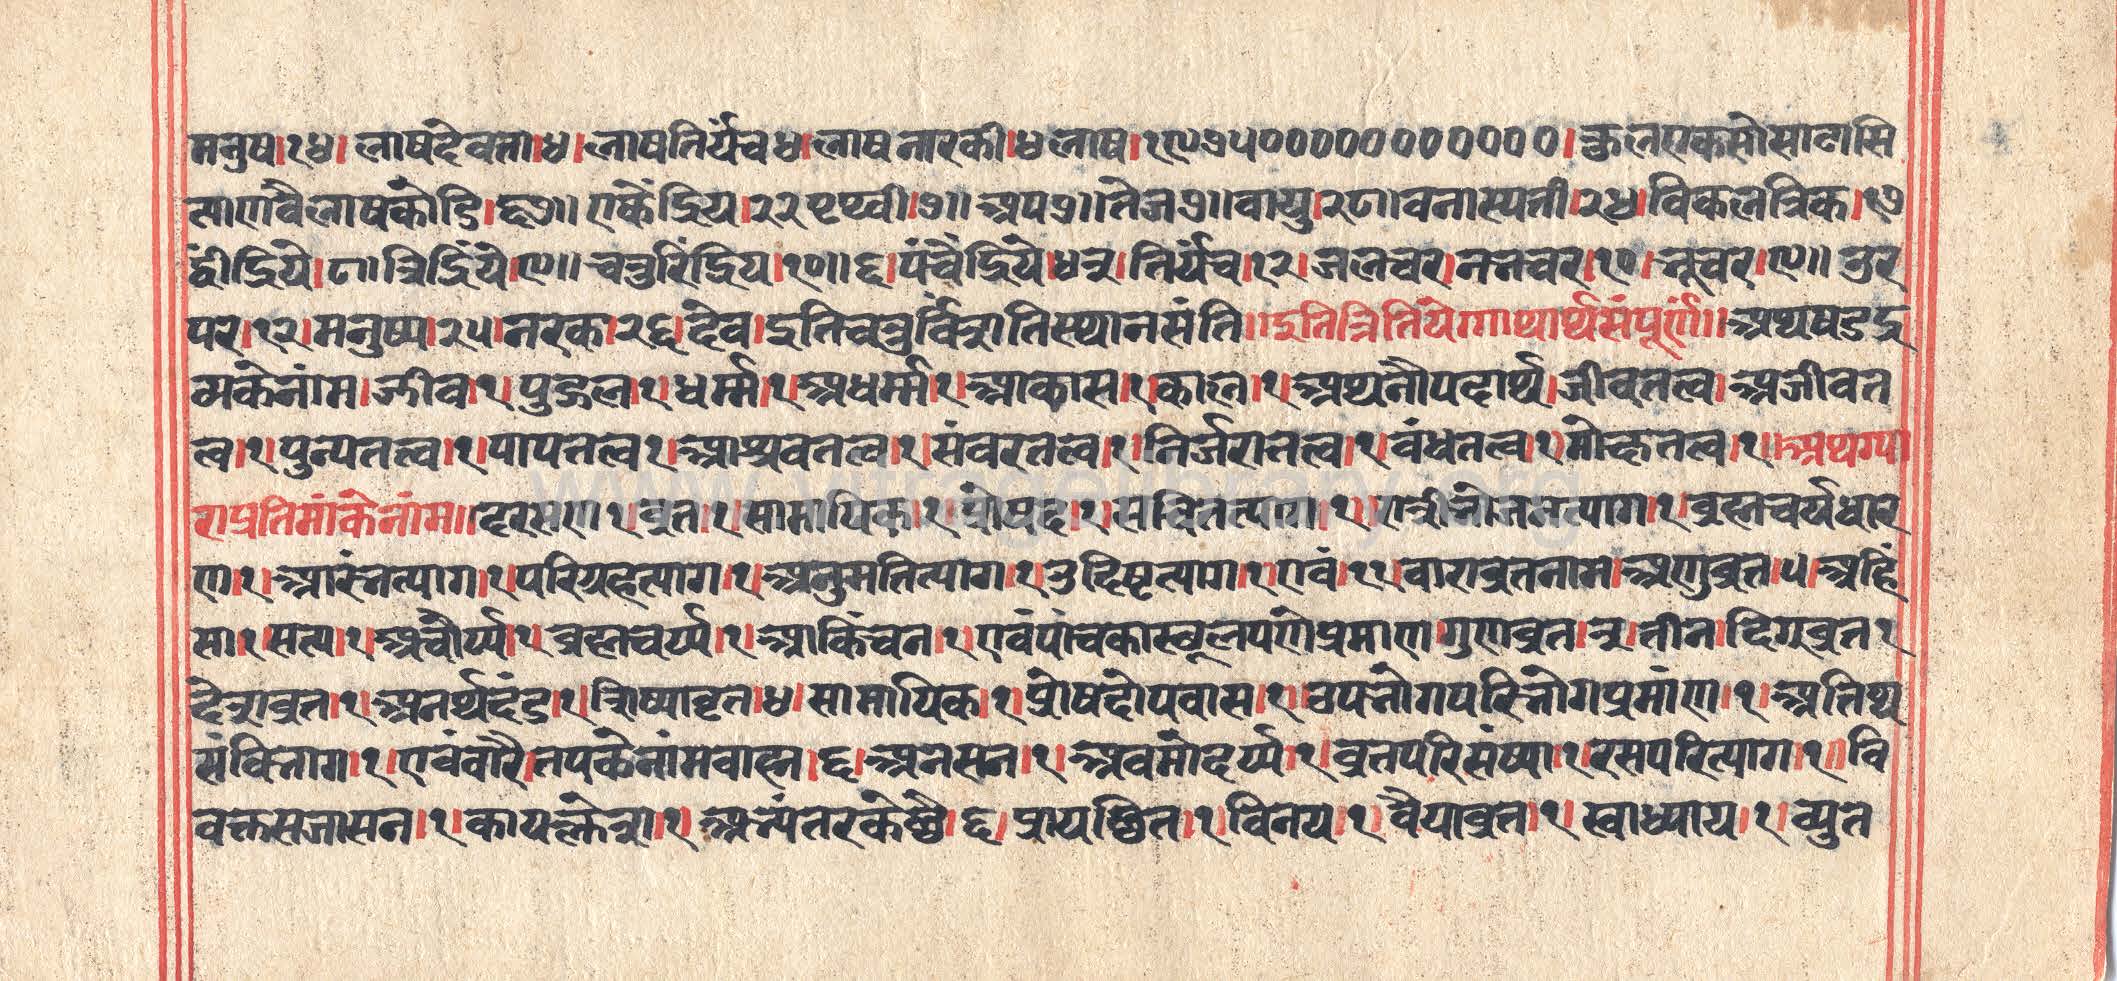 मनुष।१४। लाषदेवता।४। लाषतिर्यंच४।लाष नारकी।४लाष।१९७५०००००००००००।कुलएकसोसाढासि
ताणवैलाषकोडि।६७॥ एकेंद्रिय।२२पृथ्वी।७॥ अप७॥तेज३॥वायु।२८।वनास्पती।२४।विकलत्रिक।१७
द्वींद्रिये।८॥त्रिद्रिंये।९॥ चतुरिंद्रिय।१०॥६।पंचेंद्रिये।४त्र।तिर्यंच।१२।जलचर।नभचर।१०।भूचर।९॥ उर
पर।१२।मनुष्य।२५।नरक।२६।देव।इतिचतुर्विंशतिस्थानसंति॥इतित्रितिंयेगाथार्थसंपूर्णं॥अथषडद्र
व्यकेनांम।जीव।१।पुद्गल।१।धर्म्म।१।अधर्म्म।१।आकास।१।काल।१।अथनौपदार्थ।जीवतत्व।अजीवत
त्व।१।पुन्यतत्व।१।पापतत्व।१।आश्रवतत्व।१।संवरतत्व।१।निर्जरातत्व।१।वंधतत्व।१।मोक्षतत्व।१॥अथग्या
राप्रतिमांकेनांम॥दरसण।१।व्रत।१।सामायिक।१।पोसह।१।सचितत्याग।१।रात्रीभोजनत्याग।१।ब्रह्मचर्यधार
ण।१।आरंभत्याग।१।परिग्रहत्याग।१।अनुमतित्याग।१।उदिष्टत्याग।१।एवं।११।वाराव्रतनाम।अणुव्रत।५।अहिं
सा।१।सत्य।१।अचौर्य्य।१।ब्रह्मचर्य्य।१।आकिंचन।१।एवंपांचकास्थूलपणेप्रमाण।गुणव्रत।३।तीन।दिगव्रत१
देशव्रत।१।अनर्थदंड।१।शिष्यावृत।४।सामायिक।१।प्रोषदोपवास।१।उपभोगपरिभोगप्रमांण।१।अतिथ
संविभाग।१।एवंवारै।तपकेनांमवाह्य।६।अनसन।१।अवमोदर्य्य।१।व्रतपरिसंष्या।१।रसपरित्याग।१॥वि
वक्तसजासन।१।कायक्लेश।१।अभ्यंतरकेछै।६।प्रायश्चित।१।विनय।१।वैयाव्रत।१।स्वाध्याय।१।व्युत
www.vitragelibrary.org